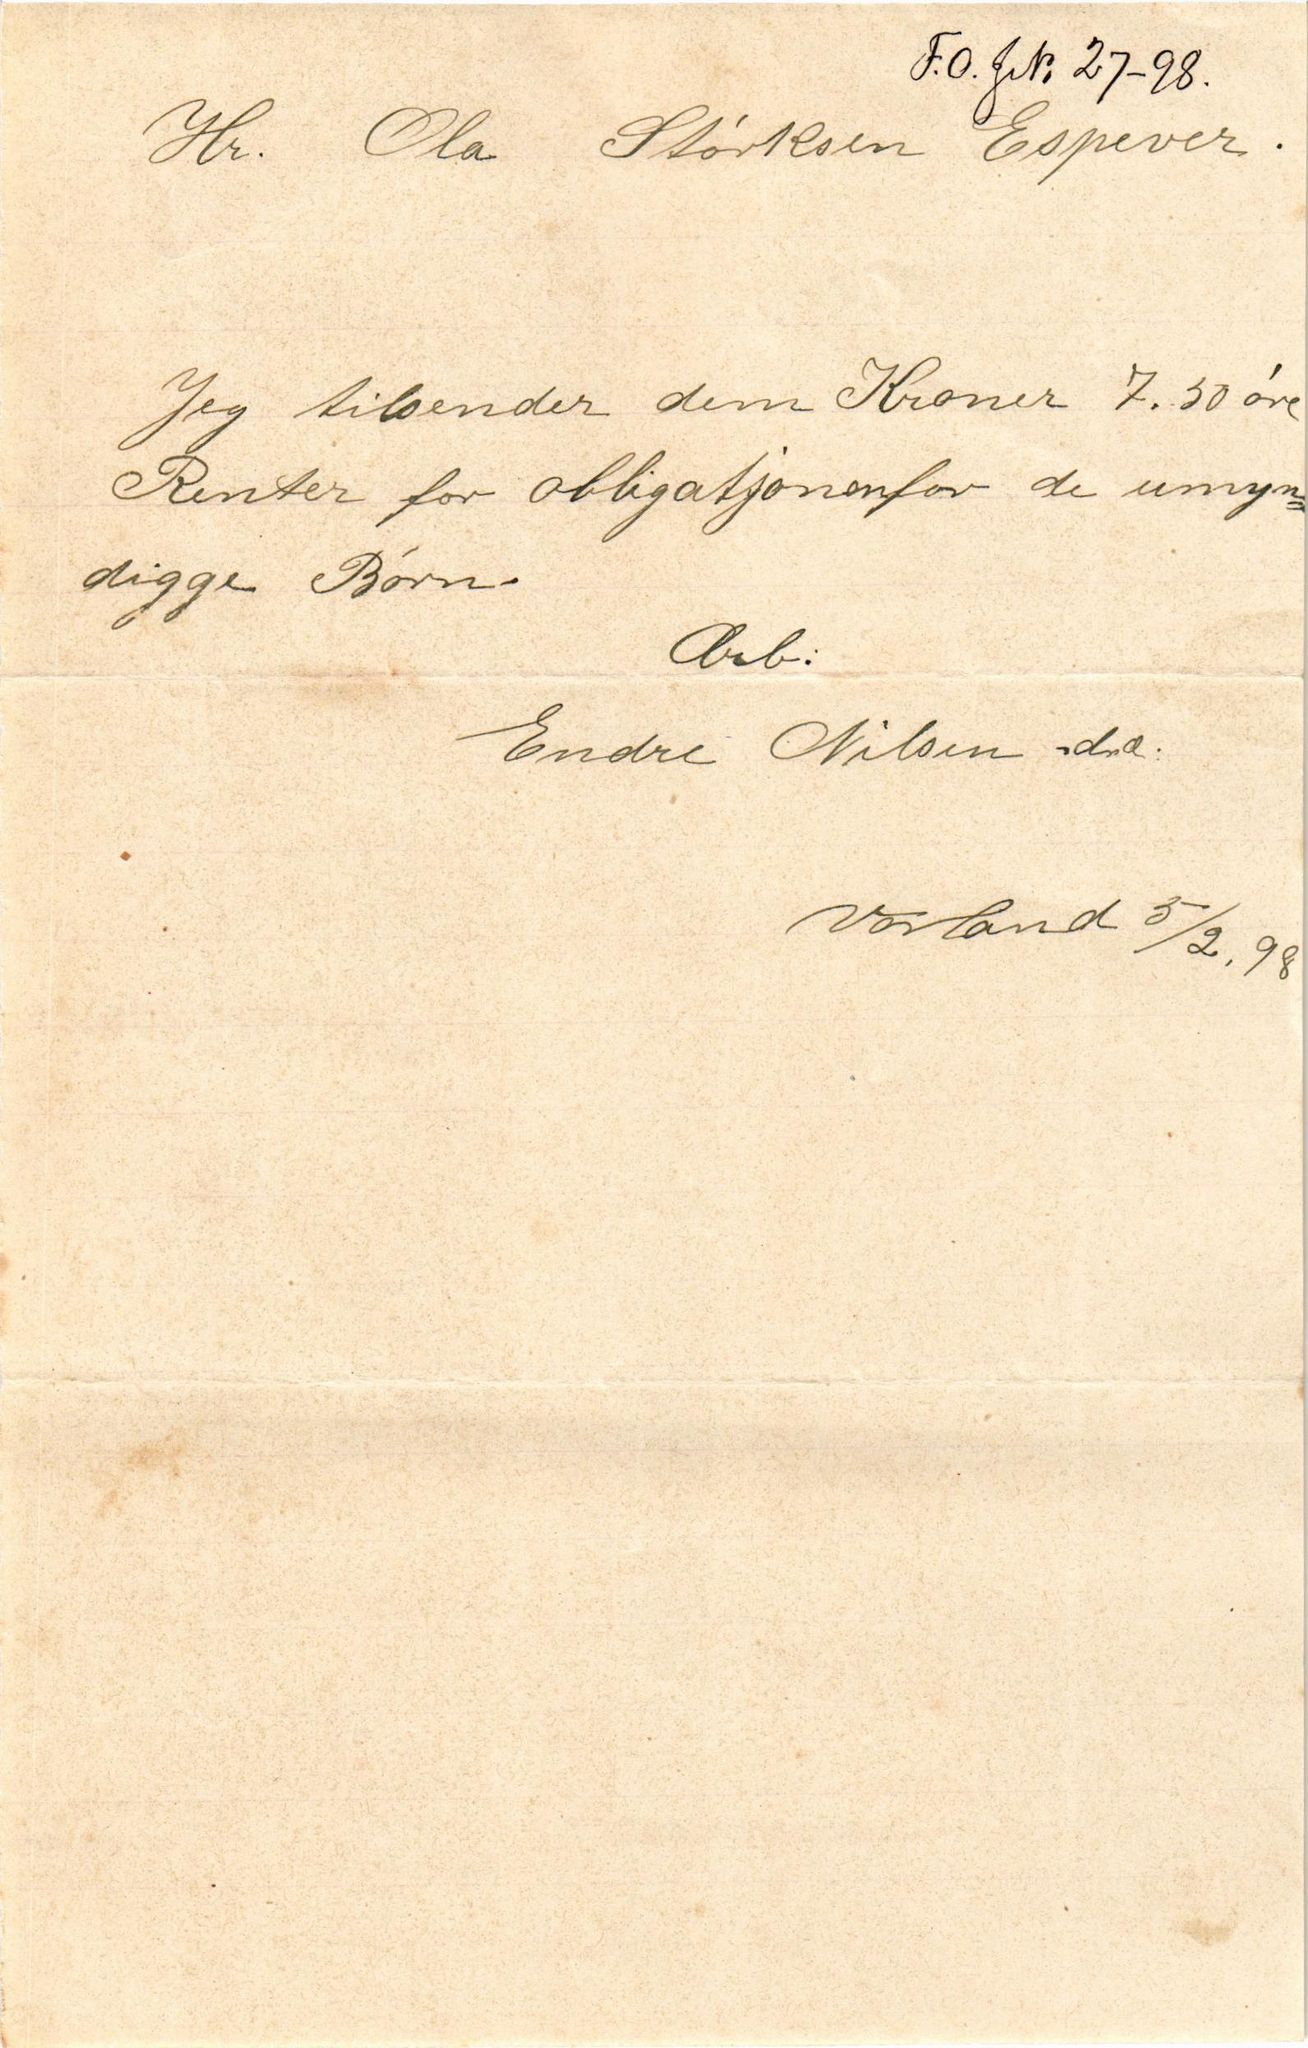 F.O. J.N. 27-98.
Hr. Ola Störksen Espever.
Jeg tilsender dem Kroner 7.50 öre
Renter for obligatjonen for de umyn=
digge Börn.
Ærb:
Endre Nilsen
Vorland 5/2. 98